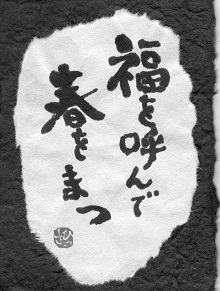 福を呼んで
春をまつ